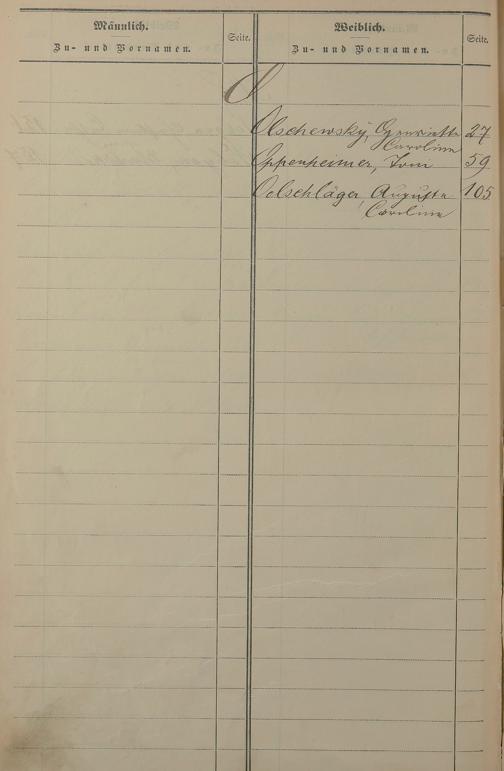 Männlich.
Zu- und Vornamen.
Seite.
Weiblich.
Zu- und Vornamen.
Seite.
O
Olschewsky, Henriette 27
Caroline
Oppenheimer, Toni 59
Oelschläger, Auguste 105
Caroline